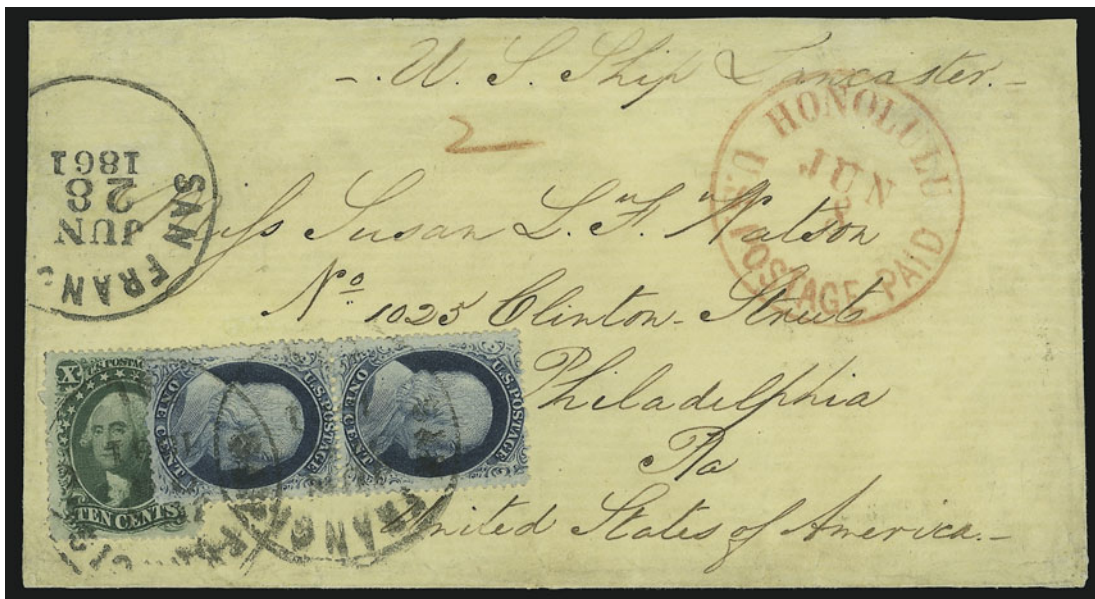 -. U. S. Ship Lancaster.-
HONOLULU
U.S. POSTAGE PAID
JUN
2
SAN FRANC
JUN
28
1861
Miss Susan L. F. Watson
No 1025 Clinton Street
Philadelphia
Pa
United States of America.-
X
U.S. POSTAGE
TEN CENTS
U.S. POSTAGE
ONE CENT
U.S. POSTAGE
ONE CENT
FRANC